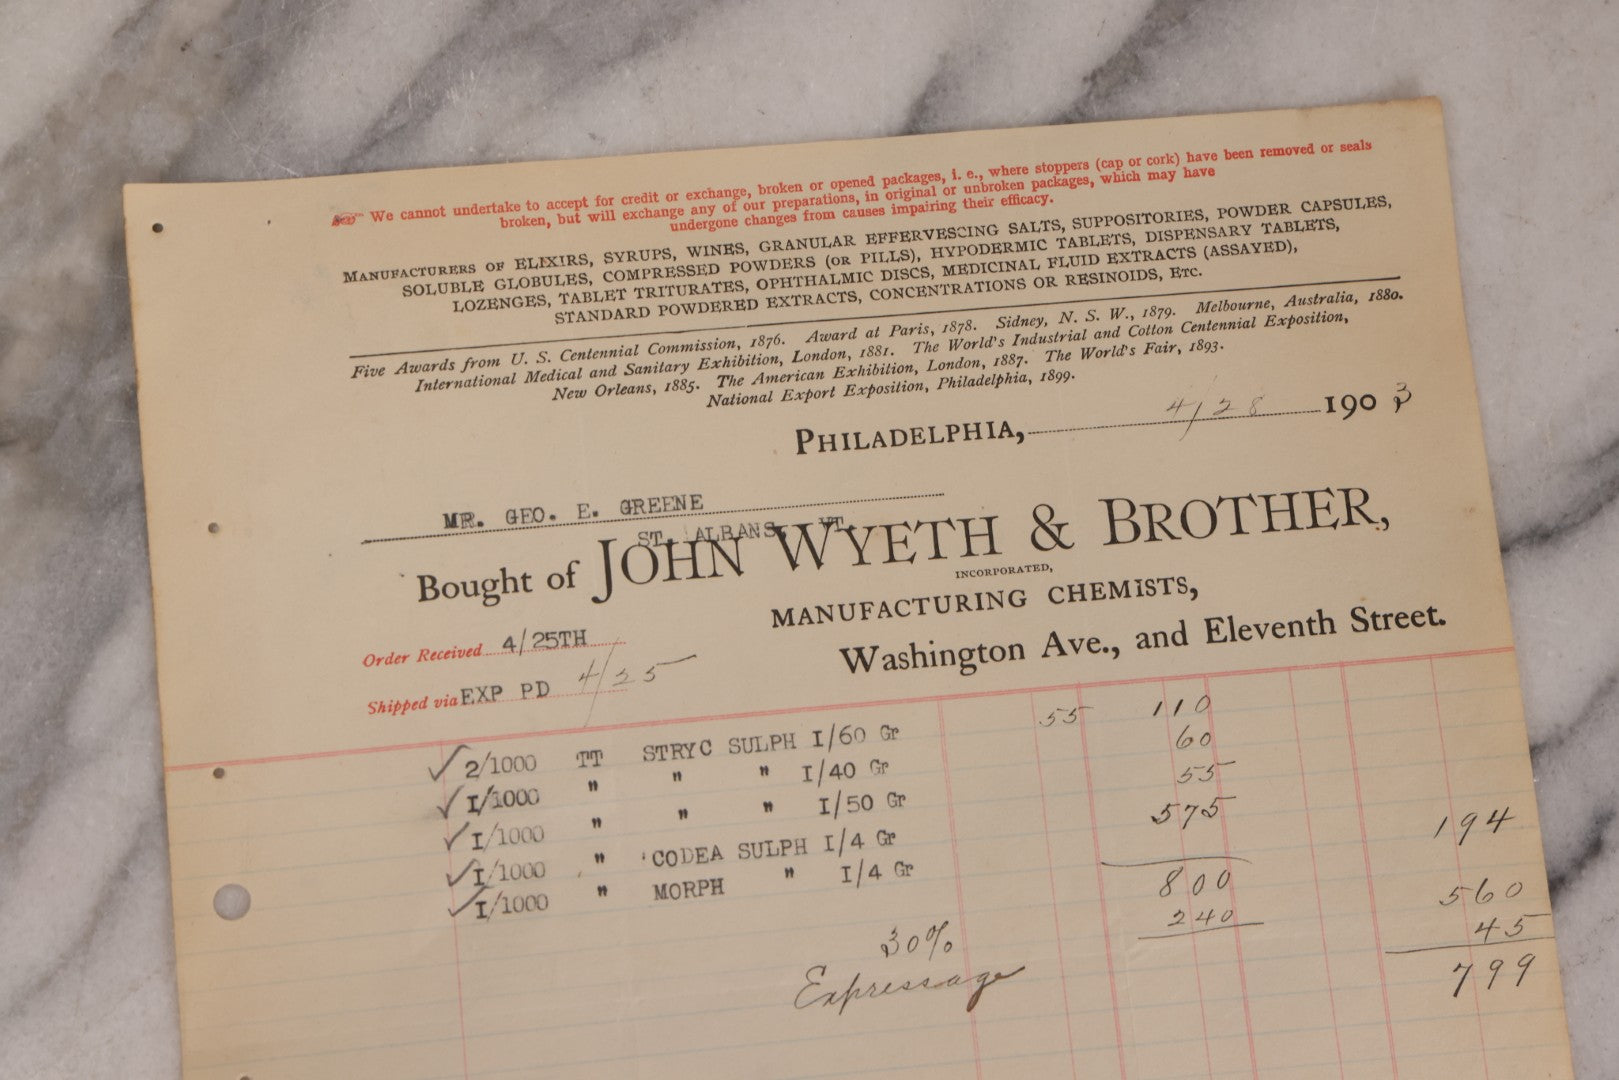 We cannot undertake to accept for credit or exchange, broken or opened packages, i. e., where stoppers (cap or cork) have been removed or seals
broken, but will exchange any of our preparations, in original or unbroken packages, which may have
undergone changes from causes impairing their efficacy.
MANUFACTURERS OF ELIXIRS, SYRUPS, WINES, GRANULAR EFFERVESCING SALTS, SUPPOSITORIES, POWDER CAPSULES,
SOLUBLE GLOBULES, COMPRESSED POWDERS (OR PILLS), HYPODERMIC TABLETS, DISPENSARY TABLETS,
LOZENGES, TABLET TRITURATES, OPHTHALMIC DISCS, MEDICINAL FLUID EXTRACTS (ASSAYED),
STANDARD POWDERED EXTRACTS, CONCENTRATIONS OR RESINOIDS, ETC.
Five Awards from U. S. Centennial Commission, 1876. Award at Paris, 1878. Sidney, N. S. W., 1879. Melbourne, Australia, 1880.
International Medical and Sanitary Exhibition, London, 1881. The World's Industrial and Cotton Centennial Exposition,
New Orleans, 1885. The American Exhibition, London, 1887. The World's Fair, 1893.
National Export Exposition, Philadelphia, 1899.
PHILADELPHIA, 4/28 1903
MR. GEO. E. GREENE
ST. ALBANS, VT.
Bought of JOHN WYETH & BROTHER,
INCORPORATED,
MANUFACTURING CHEMISTS,
Washington Ave., and Eleventh Street.
Order Received 4/25TH
Shipped via EXP PD 4/25
2/1000 TT STRYC SULPH I/60 Gr 55 110
I/1000 " " " I/40 Gr 60
I/1000 " " " I/50 Gr 55
I/1000 " CODEA SULPH I/4 Gr 575
I/1000 " MORPH " I/4 Gr 194
800
30% 240 560
Expressage 45
799